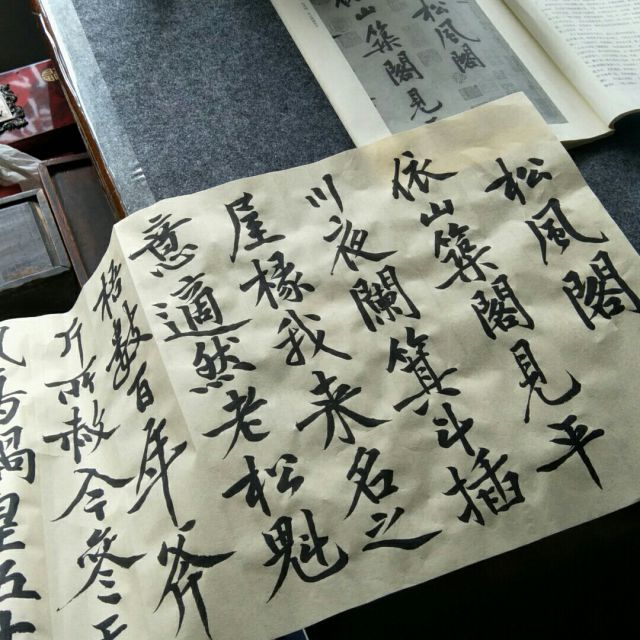 松風閣
依山築閣見
松風閣
依山築閣見平
川夜闌箕斗插
屋椽我来名之
意適然老松魁
梧數百年斧
斤所赦今參天
皇五